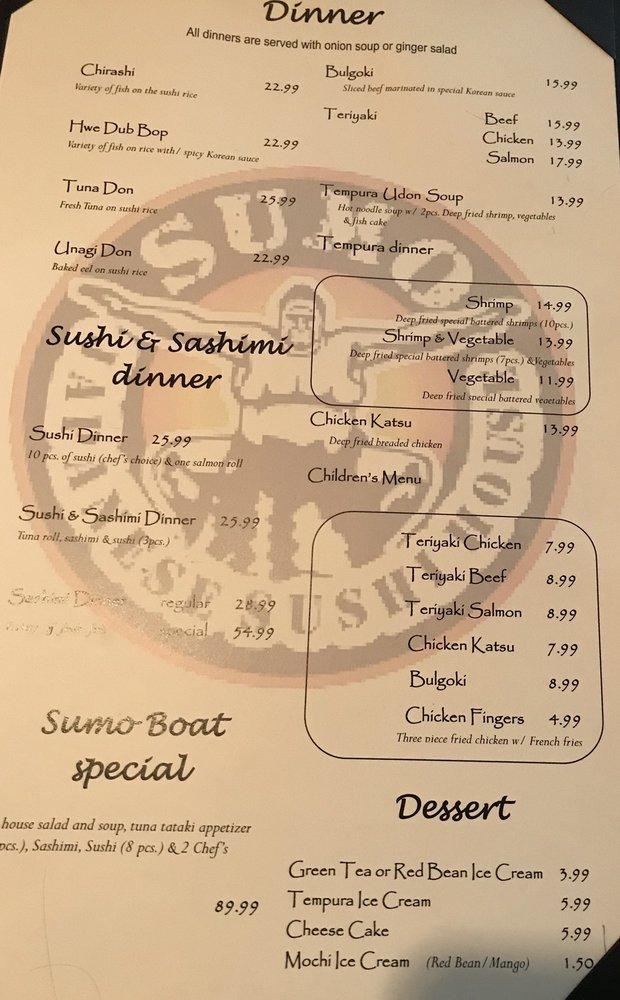 Dinner
All dinners are served with onion soup or ginger salad
Chirashi 22.99
Variety of fish on the sushi rice
Hwe Dub Bop 22.99
Variety of fish on rice with / spicy Korean sauce
Tuna Don 25.99
Fresh Tuna on sushi rice
Unagi Don 22.99
Baked eel on sushi rice
Sushi & Sashimi
dinner
Sushi Dinner 25.99
10 pcs. of sushi (chef's choice) & one salmon roll
Sushi & Sashimi Dinner 25.99
Tuna roll, sashimi & sushi (3pcs.)
Sashimi Dinner regular 28.99
special 54.99
Sumo Boat
special
house salad and soup, tuna tataki appetizer
pcs.), Sashimi, Sushi (8 pcs.) & 2 Chef's
89.99
Bulgoki 15.99
Sliced beef marinated in special Korean sauce
Teriyaki Beef 15.99
Chicken 13.99
Salmon 17.99
Tempura Udon Soup 13.99
Hot noodle soup w/ 2pcs. Deep fried shrimp, vegetables
& fish cake
Tempura dinner
Shrimp 14.99
Deep fried special battered shrimps (10pcs.)
Shrimp & Vegetable 13.99
Deep fried special battered shrimps (7pcs.) & Vegetables
Vegetable 11.99
Deep fried special battered vegetables
Chicken Katsu 13.99
Deep fried breaded chicken
Children's Menu
Teriyaki Chicken 7.99
Teriyaki Beef 8.99
Teriyaki Salmon 8.99
Chicken Katsu 7.99
Bulgoki 8.99
Chicken Fingers 4.99
Three piece fried chicken w/ French fries
Dessert
Green Tea or Red Bean Ice Cream 3.99
Tempura Ice Cream 5.99
Cheese Cake 5.99
Mochi Ice Cream (Red Bean / Mango) 1.50
SUMO